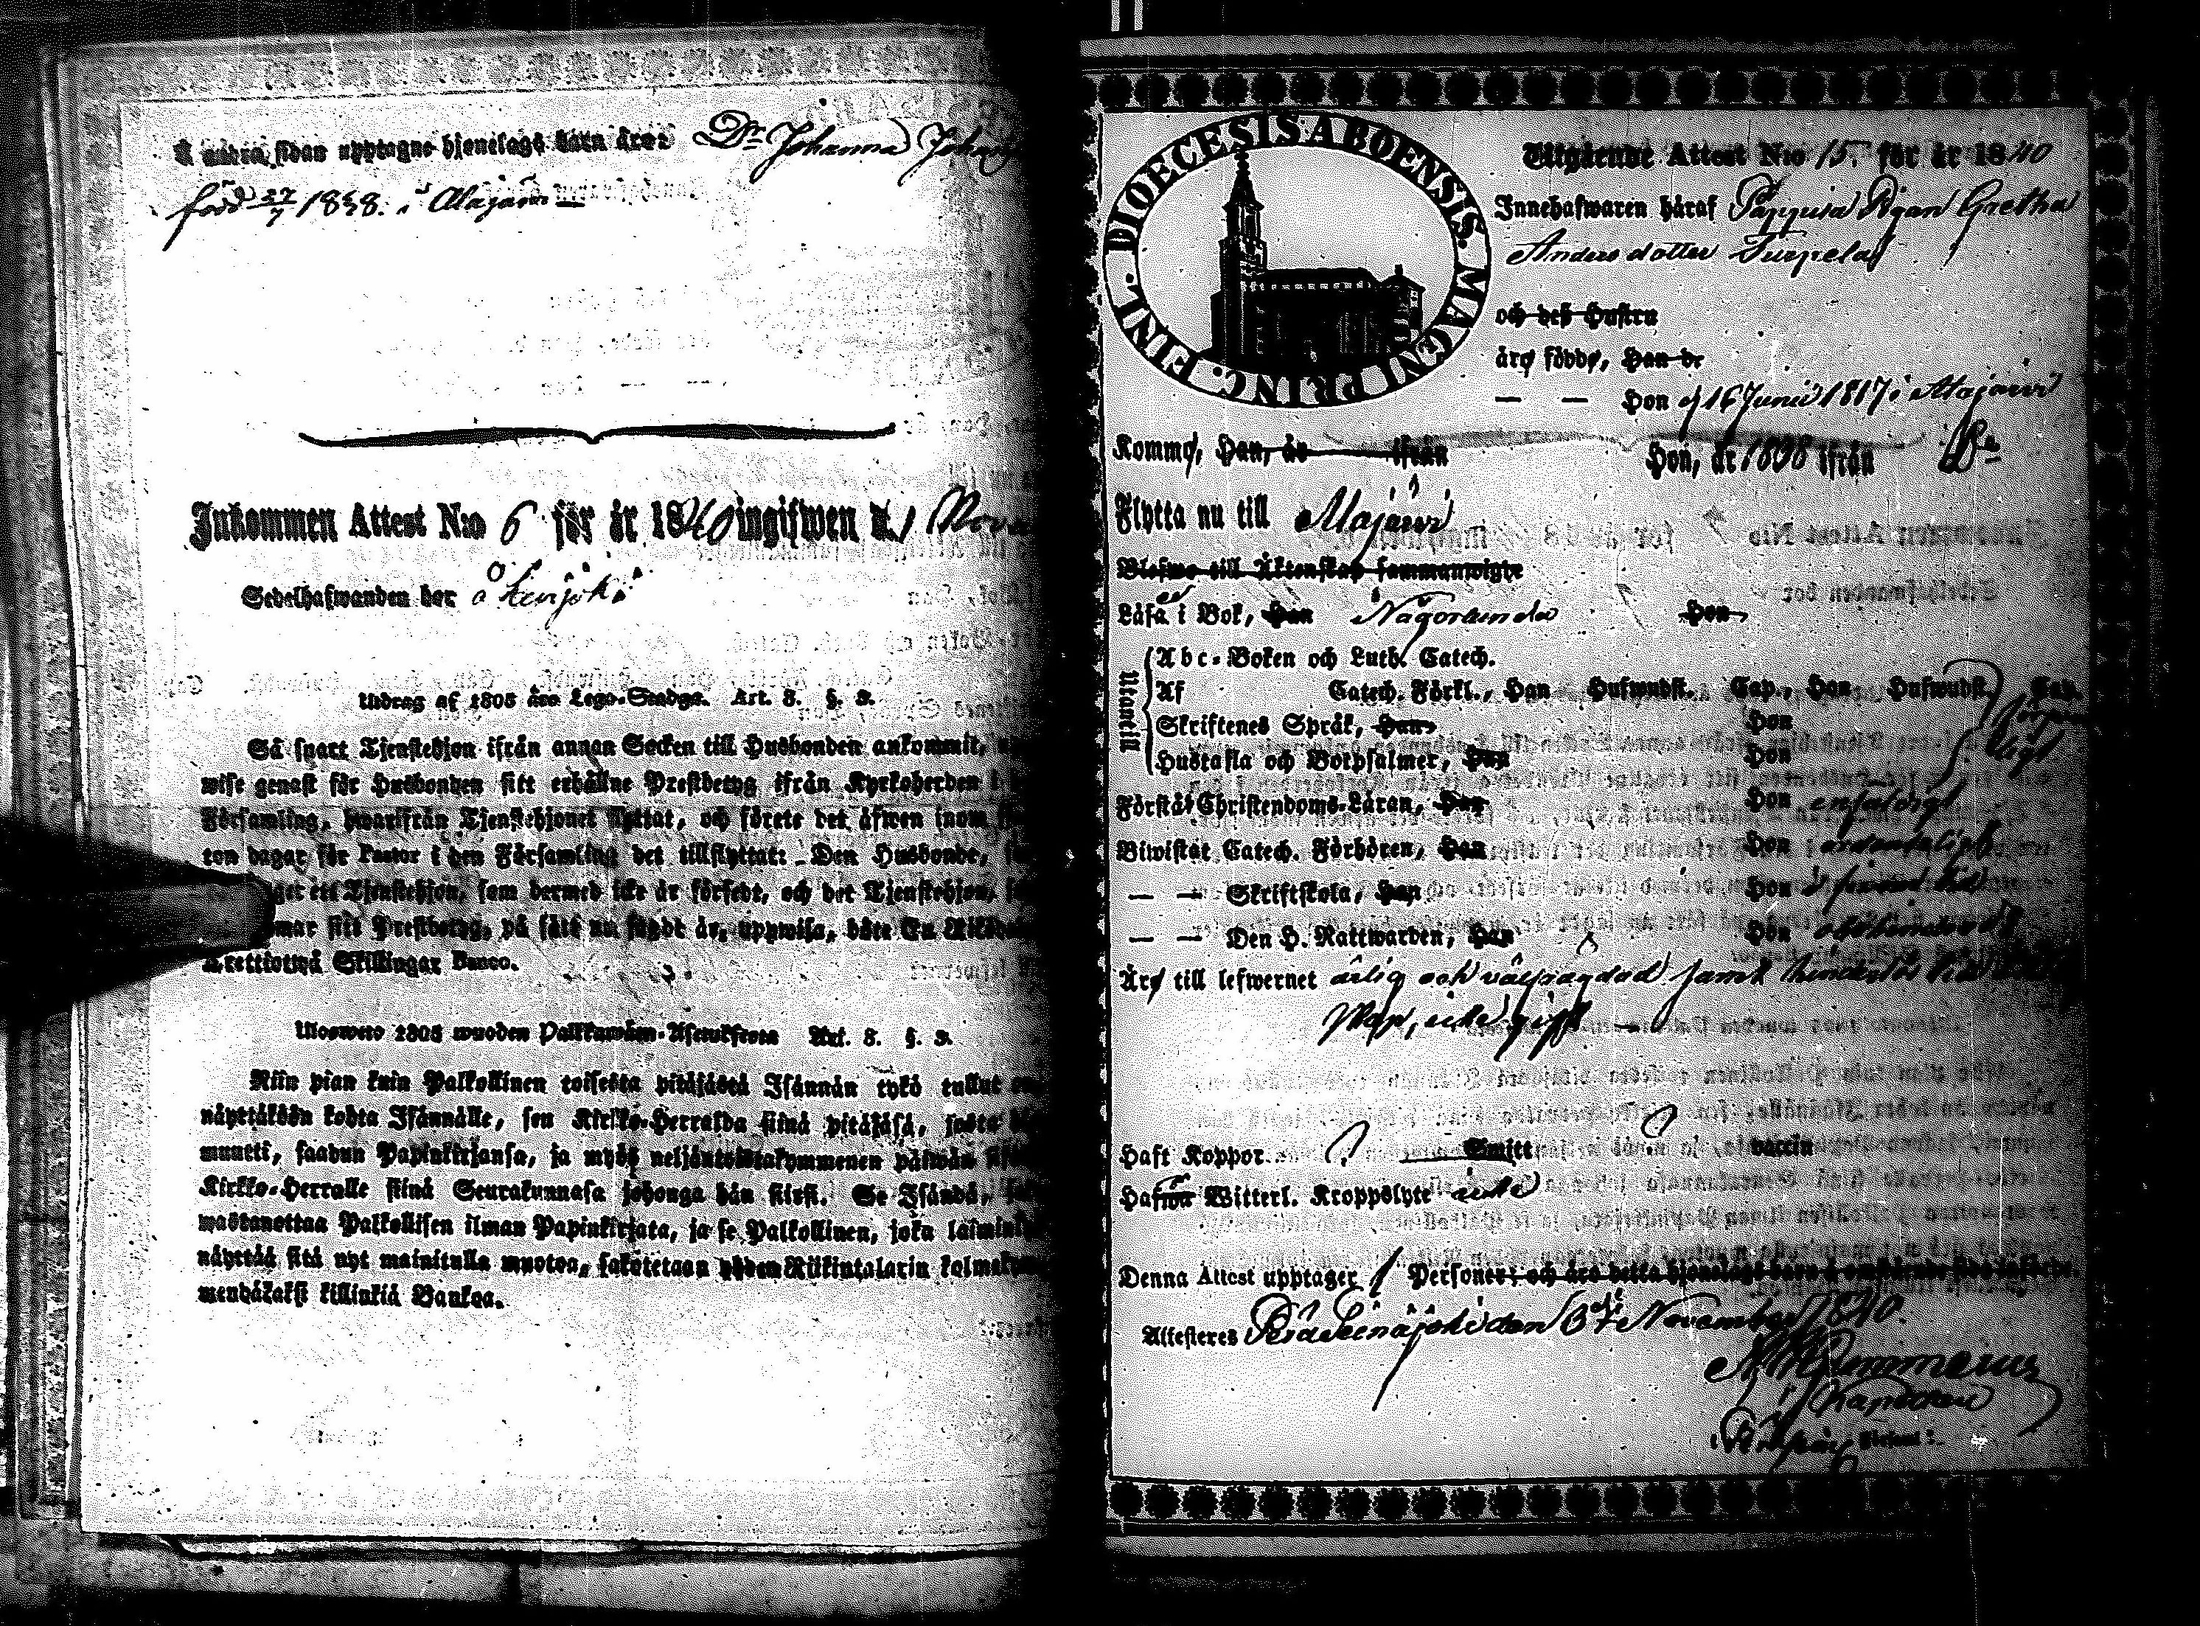 Å andra sidan upptagne hjonelags barn äro: Dr. Johanna
född 27/7 1838. i Alajärvi
Inkommen Attest N:o 6 för år 1840 ingifwen d. 1
Sedelhafwanden bor å
Utdrag af 1805 års Lego-Stadga. Art. 8. §. 3.
Så snart Tjenstehjon ifrån annan Socken till Husbonden ankommit,
wise genast för Husbonden sitt erhållne Prestbetyg ifrån Kyrkoherden i
Församling, hwarifrån Tjenstehjonet flyttat, och förete det äfwen inom
ton dagar för Pastor i den Församling det tillflyttat: Den Husbonde,
ett Tjenstehjon, som dermed icke är försedt, och det Tjenstehjon,
sitt Prestbetyg, på sätt nu sagdt är, uppwisa, böte En
Trettiotwå Skillingar Banco.
Ulosweto 1805 wuoden Palkkawäen-Asetuksesta Art. 8. §. 3.
Niin pian kuin Palkollinen toisesta pitäjästä Isännän tykö tullut
näyttäköön kohta Isännälle, sen Kirkko-Herralda siinä pitäjäsä, josta
muutti, saadun Papinkirjansa, ja myös neljäntoistakymmenen päiwän
Kirkko-Herralle siinä Seurakunnasa johonga hän siirsi. Se Isändä,
wastanottaa Palkollisen ilman Papinkirjata, ja se Palkollinen, joka
näyttää sitä nyt mainitulla muotoa, sakotetaan yhden Riikintalarin
mendäkaksi killinkiä Bankoa.
DIOECESIS ABOENSIS. MAGNI PRINC. FINL.
Utgående Attest N:o 15. för år 1840
Innehafwaren häraf Pappisa Pigan Gretha
Anders dotter
och deß Hustru
äro födde, Han d.
— — Hon d 16 Junii 1817 i Alajärvi
Komme, Han, år ifrån Hon, år 1838 ifrån Do
Flytta nu till Alajärvi
Blefwo till Äktenskap sammanwigde
Läsa i Bok, Han Någorlunda Hon
Utantill
Abc-Boken och Luth. Catech.
Af Catech. Förkl., Han Hufwudst. Cap., Han Hufwudst. Cap.
Skriftenes Språk, Han Hon
Hustafla och Botpsalmer, Han Hon
Förstå Christendoms-Läran, Han Hon enfaldigt
Biwistat Catech. Förhören, Han Hon ordenteligt
— — Skriftskola, Han Hon i sinom tid
— — Den H. Nattwarden, Han Hon
Äro till lefwernet ärlig och välfrägdad samt hinderslös till
skap, icke gift —
Haft Koppor Smitt vaccin
Hafwa Witterl. Kroppslyte icke
Denna Attest upptager 1 Personer; och äro detta hjonelags barn å omstående sida införde.
Attesteres Peräseinäjoki den 6te November 1840.